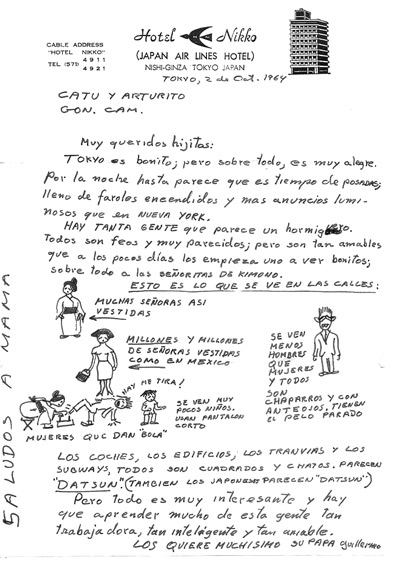 CABLE ADDRESS
"HOTEL NIKKO"
TEL (571) 4911
4921
Hotel Nikko
(JAPAN AIR LINES HOTEL)
NISHI-GINZA TOKYO JAPAN
TOKYO, 2 de Oct. 1964
CATU Y ARTURITO
GON. CAM.
Muy queridos hijitos:
TOKYO es bonito; pero sobre todo, es muy alegre.
Por la noche hasta parece que es tiempo de POSADAS;
lleno de faroles encendidos y mas anuncios lumi-
nosos que en NUEVA YORK.
HAY TANTA GENTE que parece un hormiguero.
Todos son feos y muy parecidos; pero son tan amables
que a los pocos días los empieza uno a ver bonitos;
sobre todo a las SEÑORITAS DE KIMONO.
ESTO ES LO QUE SE VE EN LAS CALLES:
MUCHAS SEÑORAS ASI
VESTIDAS
MILLONES Y MILLONES
DE SEÑORAS VESTIDAS
COMO EN MEXICO
SE VEN
MENOS
HOMBRES
QUE
MUJERES
Y TODOS
SON
CHAPARROS Y CON
ANTEOJOS. TIENEN
EL PELO PARADO
HAY ME TIRA!
SE VEN MUY
POCOS NIÑOS.
USAN PANTALON
CORTO
MUJERES QUC DAN "BOLA"
LOS COCHES, LOS EDIFICIOS, LOS TRANVIAS Y LOS
SUBWAYS, TODOS SON CUADRADOS Y CHATOS. PARECEN
"DATSUN". (TAMBIEN LOS JAPONESES PARECEN "DATSUN")
Pero todo es muy interesante y hay
que aprender mucho de esta gente tan
trabajadora, tan inteligente y tan amable.
LOS QUIERE MUCHISIMO SU PAPA Guillermo
SALUDOS A MAMA